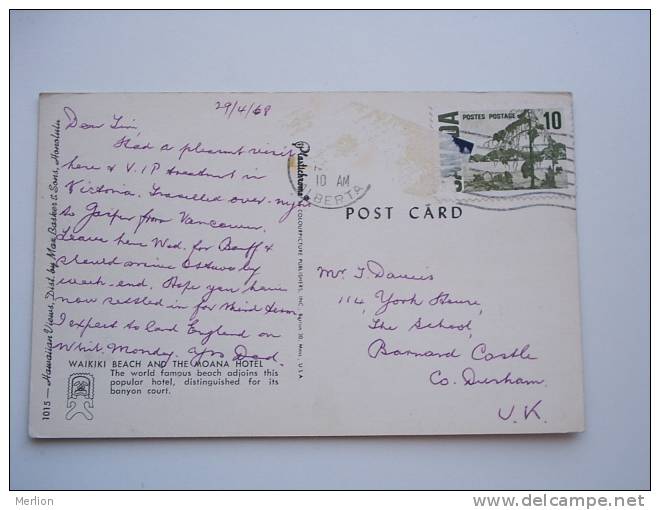 29/4/68
Dear Tim,
Had a pleasant visit
here & V.I.P treatment in
Victoria. Travelled over-night
to Jasper from Vancouver.
Leave here Wed. for Banff &
should arrive Ottawa by
week-end. Hope you have
now settled in for third term.
I expect to land England on
Whit. Monday. Yrs Dad.
WAIKIKI BEACH AND THE MOANA HOTEL
The world famous beach adjoins this
popular hotel, distinguished for its
banyon court.
1015 — Hawaiian Views, Dist. by Max Basker & Sons, Honolulu
Plastichrome
COLOURPICTURE PUBLISHERS, INC., Boston 30, Mass., U.S.A.
10 AM
ALBERTA
POSTES POSTAGE 10
POST CARD
Mr T Davies
114, York House,
The School,
Barnard Castle
Co. Durham.
U.K.
Merlion
www.delcampe.net